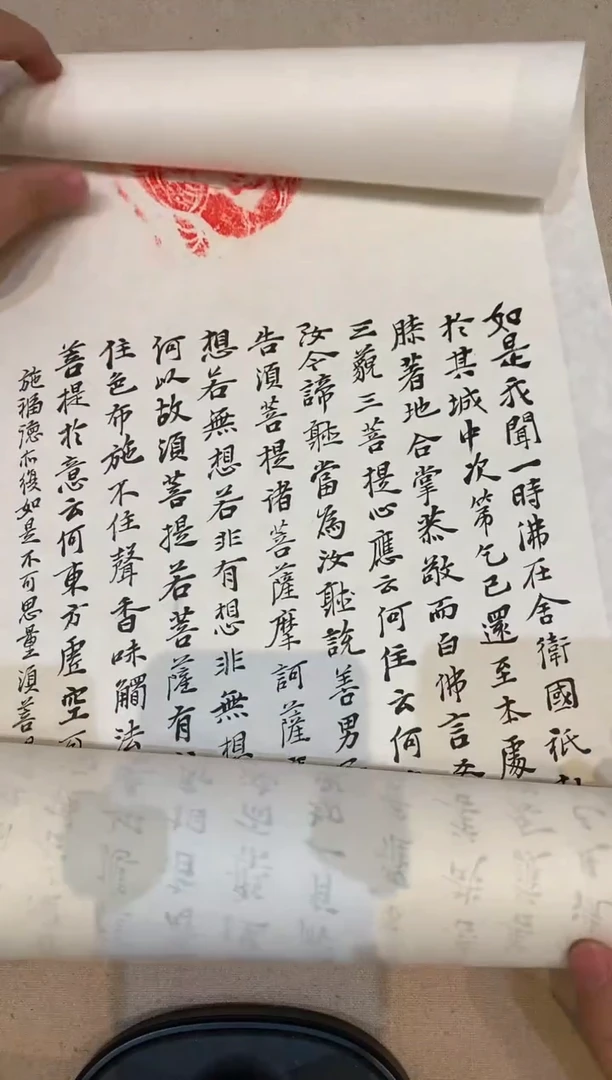 如是我聞一時佛在舍衛國祇
於其城中次第乞已還至本處
膝著地合掌恭敬而白佛言
三藐三菩提心應云何住云何
汝今諦聽當為汝聽説善男
告須菩提諸菩薩摩訶薩
想若無想若非有想非無想
何以故須菩提若菩薩有
住色布施不住聲香味觸法
菩提於意云何東方虛空可
施福德亦復如是不可思量須菩